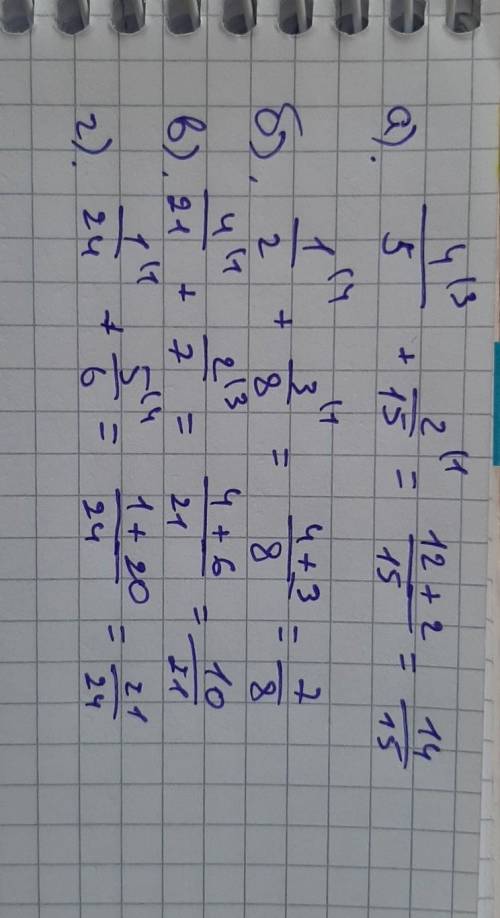 а). 4\3/5 + 2\1/15 = 12+2/15 = 14/15
б). 1\4/2 + 3\1/8 = 4+3/8 = 7/8
в). 4\1/21 + 2\3/7 = 4+6/21 = 10/21
г). 1\1/24 + 5\4/6 = 1+20/24 = 21/24